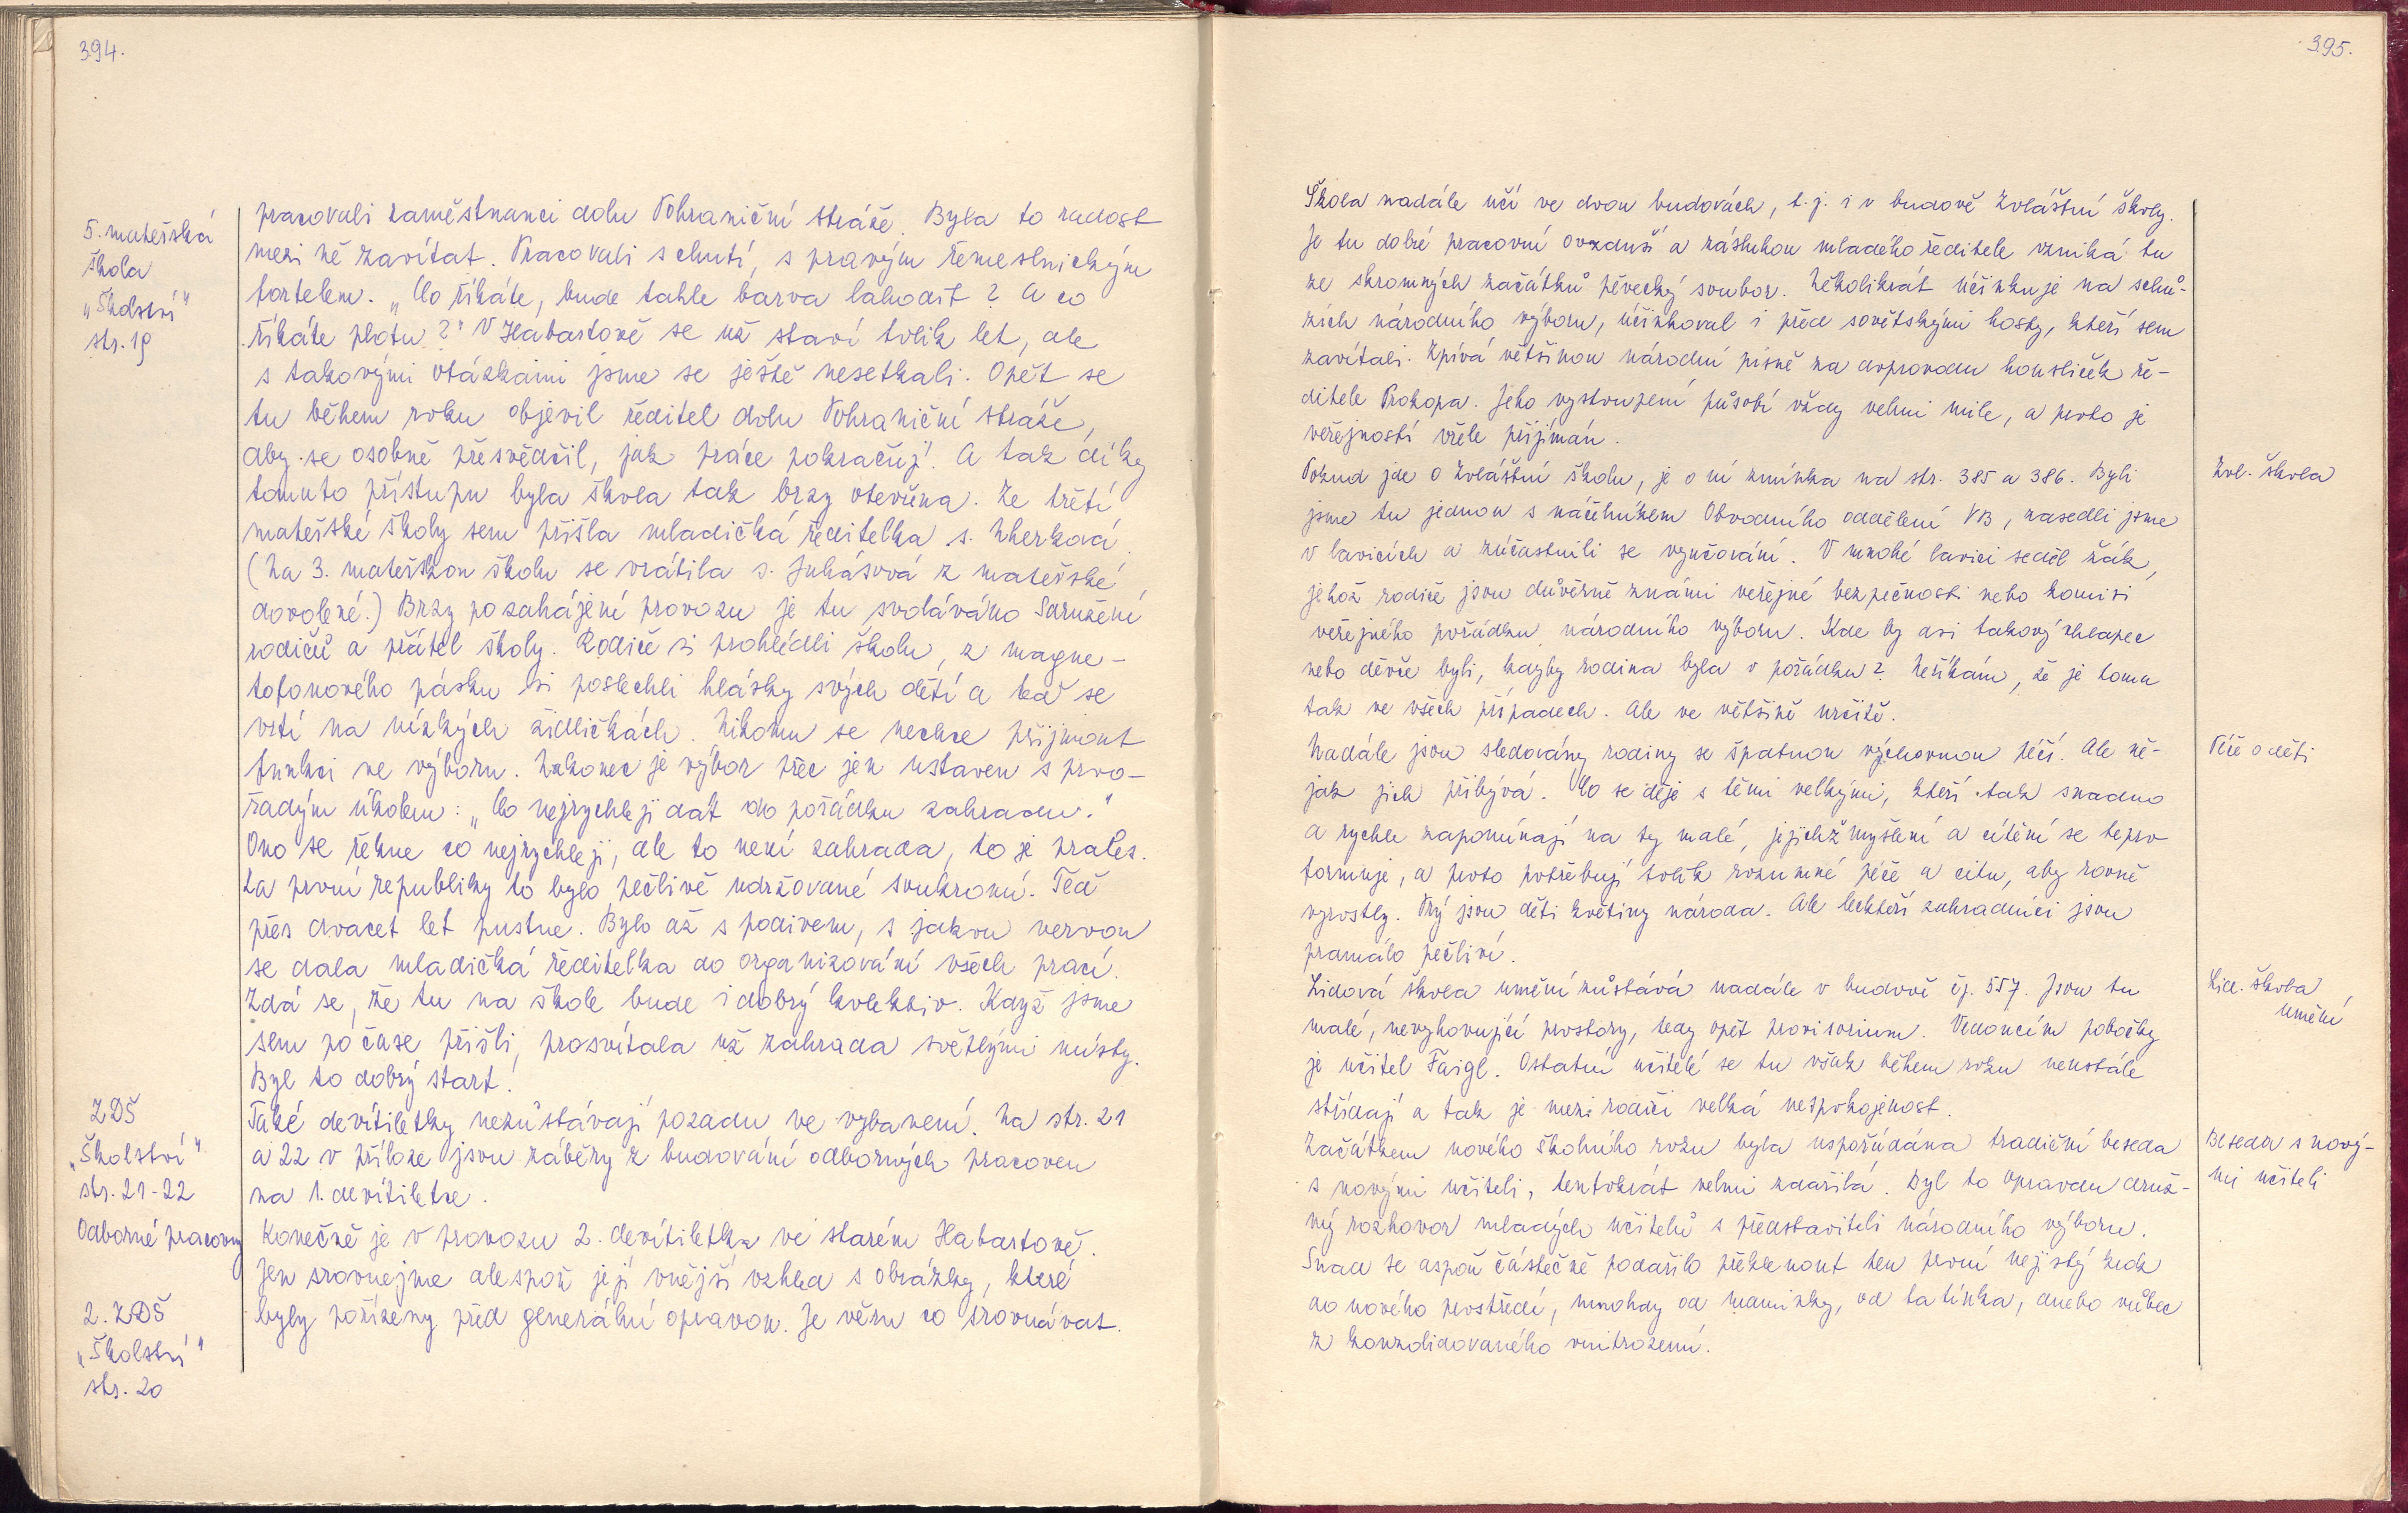 394.
5. mateřská
škola
„Školství"
str. 19
pracovali zaměstnanci dolu Pohraniční stráže. Byla to radost
mezi ně zavítat. Pracovali s chutí, s pravým řemeslnickým
fortelem. „Co říkáte, bude tahle barva lahodit? A co
říkáte plotu?" V Habartově se už staví tolik let, ale
s takovými otázkami jsme se ještě nesetkali. Opět se
tu během roku objevil ředitel dolu Pohraniční stráže,
aby se osobně přesvědčil, jak práce pokračují. A tak díky
tomuto přístupu byla škola tak brzy otevřena. Ze třetí
mateřské školy sem přišla mladičká ředitelka s.
(Na 3. mateřskou školu se vrátila s. Juhásová z mateřské
dovolené.) Brzy po zahájení provozu je tu svoláváno Sdružení
rodičů a přátel školy. Rodiče si prohlédli školu, z magne-
tofonového pásku si poslechli hlásky svých dětí a teď se
vrtí na nízkých židličkách. Nikomu se nechce přijmout
funkci ve výboru. Nakonec je výbor přec jen ustaven s prvo-
řadým úkolem: „Co nejrychleji dát do pořádku zahradu."
Ono se řekne co nejrychleji, ale to není zahrada, to je prales.
Za první republiky to bylo pečlivě udržované soukromí. Teď
přes dvacet let pustne. Bylo až s podivem, s jakou vervou
se dala mladičká ředitelka do organizování všech prací.
Zdá se, že tu na škole bude i dobrý kolektiv. Když jsme
sem po čase přišli, prosvítala už zahrada světlými místy.
Byl to dobrý start!
ZDŠ
„Školství"
str. 21-22
Odborné pracovny
Také devítiletky nezůstávají pozadu ve vybavení. Na str. 21
a 22 v příloze jsou záběry z budování odborných pracoven
na 1. devítiletce.
2. ZDŠ
„Školství"
str. 20
Konečně je v provozu 2. devítiletka ve starém Habartově.
Jen srovnejme alespoň její vnější vzhled s obrázky, které
byly pořízeny před generální opravou. Je věru co srovnávat.
395.
Škola nadále učí ve dvou budovách, t.j. i v budově Zvláštní školy.
Je tu dobré pracovní ovzduší a zásluhou mladého ředitele vzniká tu
ze skromných začátků pěvecký soubor. Několikrát účinkuje na schů-
zích národního výboru, účinkoval i před sovětskými hosty, kteří sem
zavítali. Zpívá většinou národní písně za doprovodu housliček ře-
ditele Prokopa. Jeho vystoupení působí vždy velmi mile, a proto je
veřejností vřele přijímán.
Zvl. škola
Pokud jde o Zvláštní školu, je o ní zmínka na str. 385 a 386. Byli
jsme tu jednou s náčelníkem Obvodního oddělení VB, zasedli jsme
v lavicích a zúčastnili se vyučování. V mnohé lavici seděl žák,
jehož rodiče jsou důvěrně známi veřejné bezpečnosti nebo komisi
veřejného pořádku národního výboru. Kde by asi takový chlapec
nebo děvče byli, kdyby rodina byla v pořádku? Neříkám, že je tomu
tak ve všech případech. Ale ve většině určitě.
Péče o děti
Nadále jsou sledovány rodiny se špatnou výchovnou péčí. Ale ně-
jak jich přibývá. Co se děje s těmi velkými, kteří tak snadno
a rychle zapomínají na ty malé, jejichž myšlení a cítění se teprv
formuje, a proto potřebují tolik rozumné péče a citu, aby rovně
vyrostly. Prý jsou děti květiny národa. Ale leckteří zahradníci jsou
pramálo pečliví.
Lid. škola
umění
Lidová škola umění zůstává nadále v budově čj. 557. Jsou tu
malé, nevyhovující prostory, tedy opět provisorium. Vedoucím pobočky
je učitel Faigl. Ostatní učitelé se tu však během roku neustále
střídají a tak je mezi rodiči velká nespokojenost.
Beseda s nový-
mi učiteli
Začátkem nového školního roku byla uspořádána tradiční beseda
s novými učiteli, tentokrát velmi zdařilá. Byl to opravdu druž-
ný rozhovor mladých učitelů s představiteli národního výboru.
Snad se aspoň částečně podařilo překlenout ten první nejistý krok
do nového prostředí, mnohdy od maminky, od tatínka, anebo vůbec
z konzolidovaného vnitrozemí.